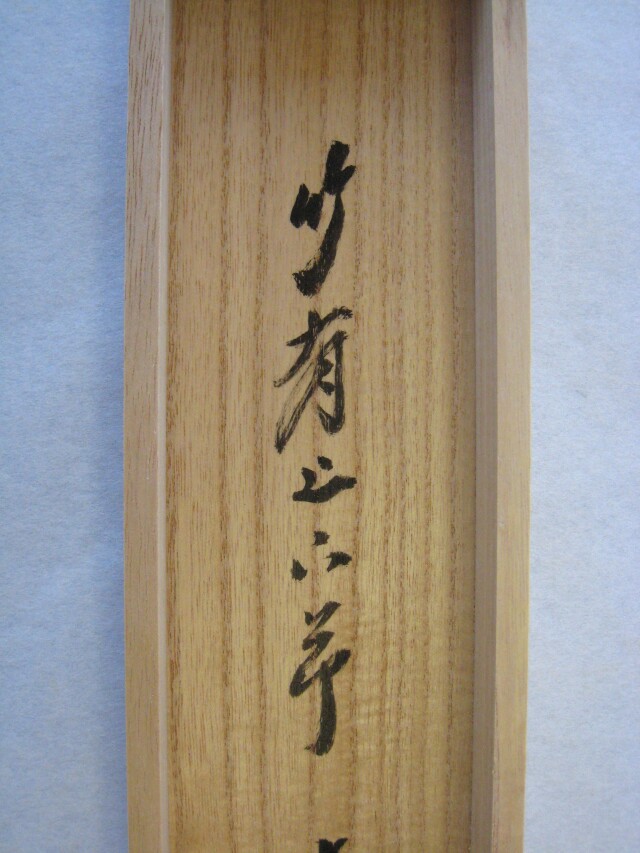 竹有上下節